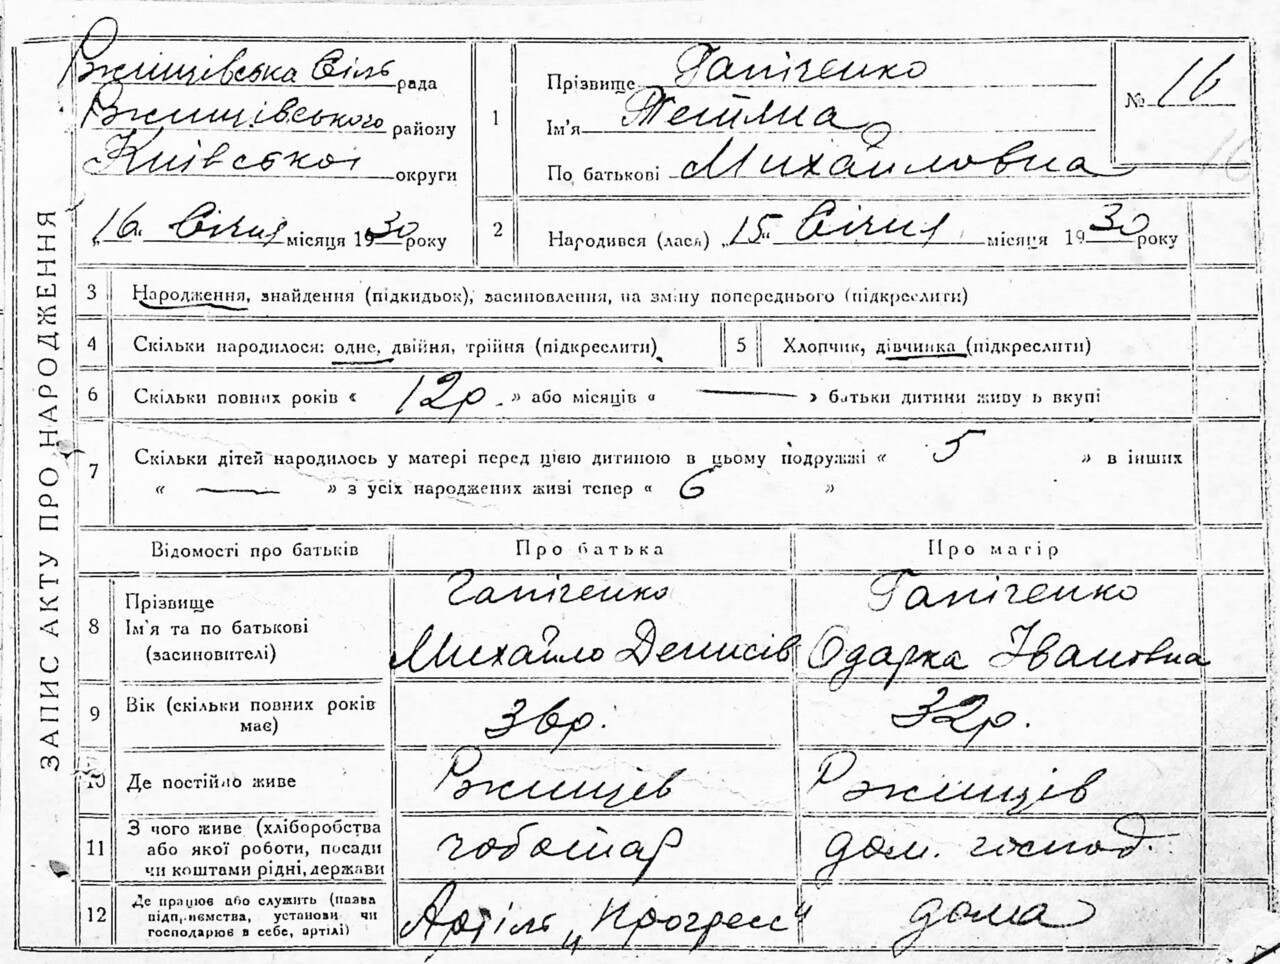 ЗАПИС АКТУ ПРО НАРОДЖЕННЯ
Ржищівська Сіль рада
Ржищівського району
Київської округи
„16“ Січня місяця 1930 року
1
Прізвище Гапіченко
Ім'я Тетяна
По батькові Михайловна
№ 16
16
2
Народився (лася) „15“ Січня місяця 1930 року
3 Народження, знайдення (підкидьок), засиновлення, на зміну попереднього (підкреслити)
4 Скільки народилося: одне, двійня, трійня (підкреслити)
5 Хлопчик, дівчинка (підкреслити)
6 Скільки повних років « 12р. » або місяців « — » батьки дитини живу ь вкупі
7 Скільки дітей народилось у матері перед цією дитиною в цьому подружжі « 5 » в інших
« — » з усіх народжених живі тепер « 6 »
Відомості про батьків Про батька Про матір
8 Прізвище
Ім'я та по батькові
(засиновителі)
Гапіченко
Михайло Денисів
Гапіченко
Одарка Івановна
9 Вік (скільки повних років
має)
36р. 32р.
10 Де постійно живе Ржищев Ржищів
11 З чого живе (хліборобства
або якої роботи, посади
чи коштами рідні, держави
чоботар дом. господ.
12 Де працює або служить (назва
підп,иємства, установи чи
господарює в себе, артілі)
Артіль „Прогрес" дома